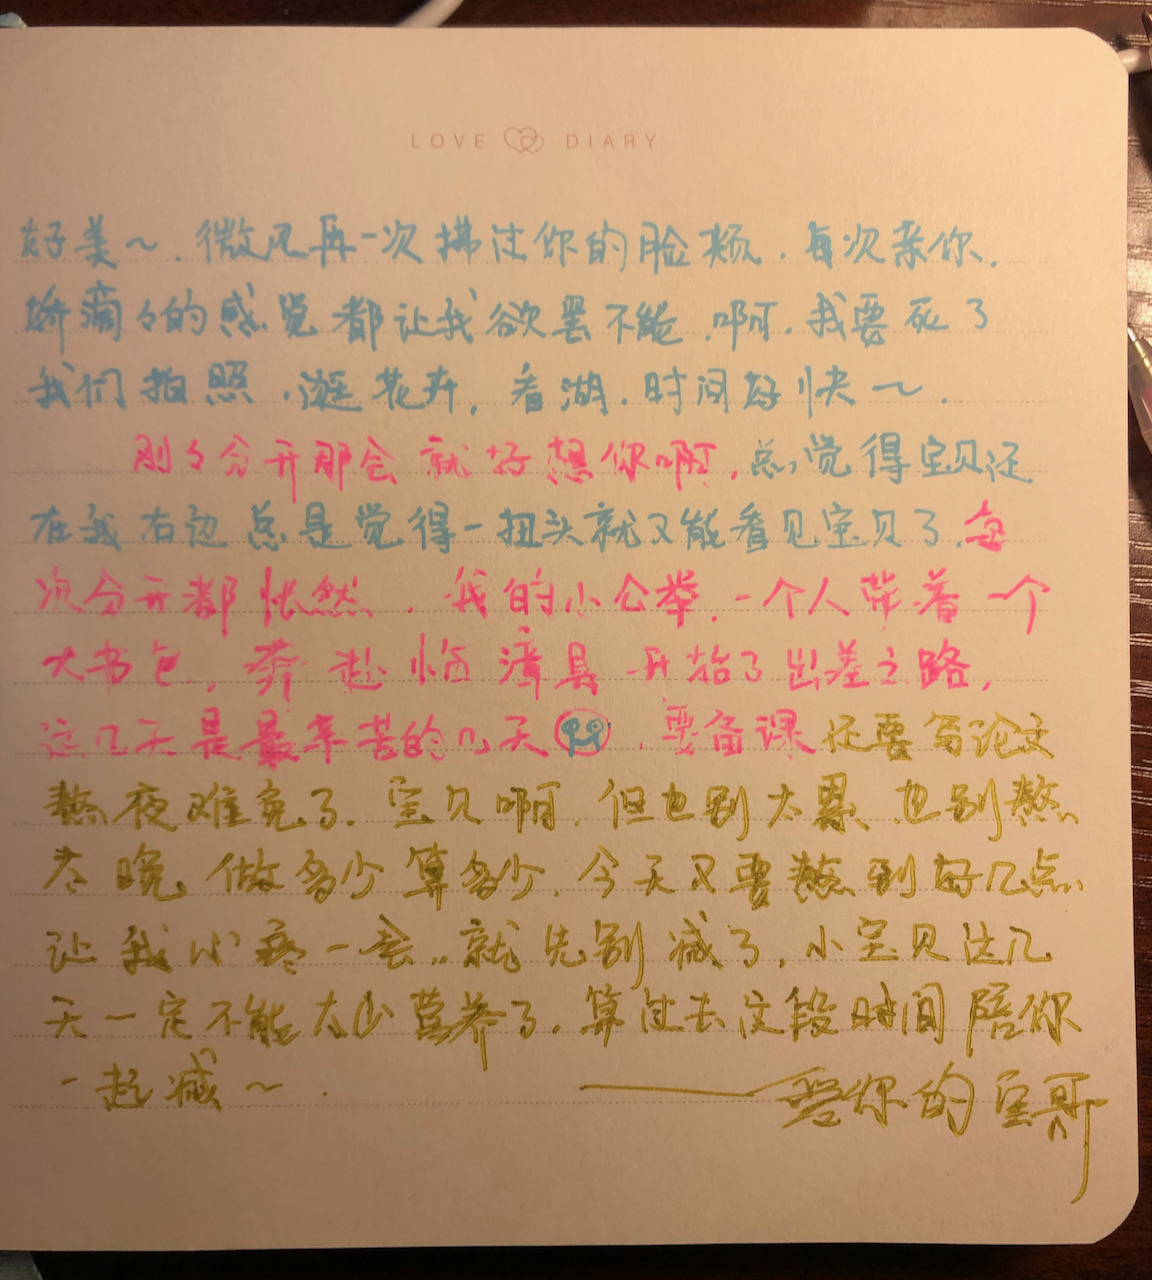 LOVE DIARY
好美～.微风再一次拂过你的脸颊.每次亲你.
娇滴々的感觉都让我欲罢不能.啊.我要死了
我们拍照.逛花卉,看湖.时间好快～.
刚々分开那会就好想你啊,总觉得宝贝还
在我右边总是觉得一扭头就又能看见宝贝了.每
次分开都怅然.我的小公举.一个人带着一个
大书包,奔赴临漳县开始了出差之路,
这几天是最辛苦的几天.要备课还要写论文
熬夜难免了.宝贝啊.但也别太累.也别熬
太晚 做多少算多少.今天又要熬到好几点
让我心疼一会..就先别减了,小宝贝这几
天一定不能太少营养了.算过去这段时间陪你
一起减～.
——爱你的宝哥